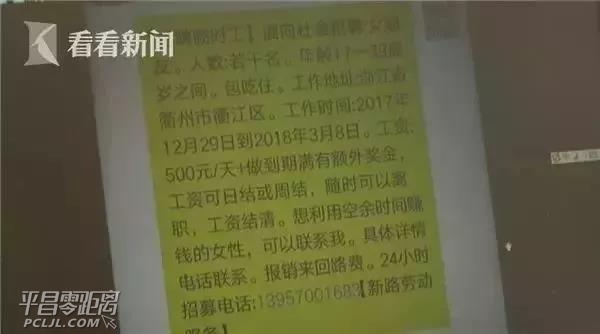 看看新闻
【聘临时工】面向社会招聘女朋
友。人数:若干名。年龄17一35周
岁之间。包吃住。工作地址:浙江省
衢州市衢江区。工作时间:2017年
12月29日到2018年3月8日。工资:
500元/天+做到期满有额外奖金，
工资可日结或周结，随时可以离
职，工资结清。想利用空余时间赚
钱的女性，可以联系我。具体详情
电话联系。报销来回路费。24小时
招募电话:13957001683【新路劳动
服务】
平昌零距离
PCLJL.COM